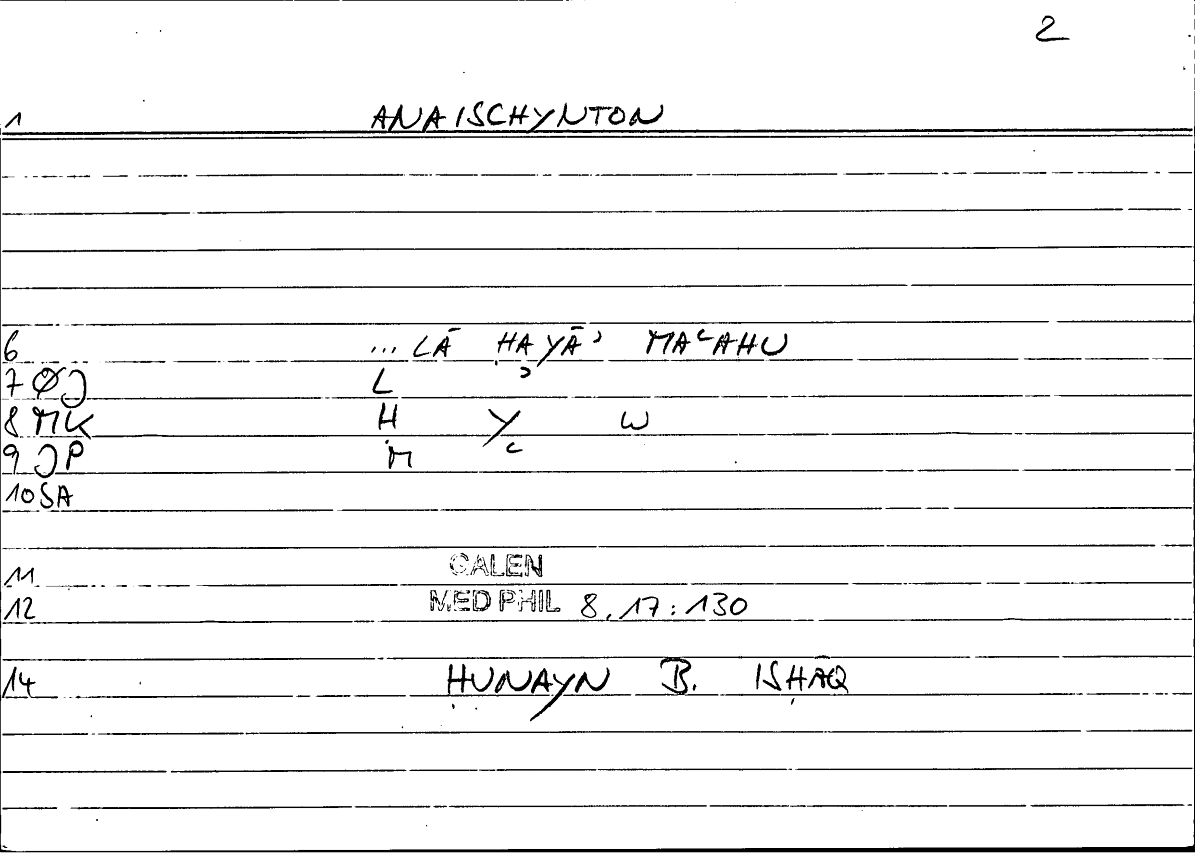 2
1 ANAISCHYNTON
6 ... LĀ ḤAYĀʾ MAʿAHU
7 ØJ L ʾ
8 MK H Y W
9 JP Ḥ M ʿ
10 SA
11 GALEN
12 MED PHIL 8,17:130
14 ḤUNAYN B. ISḤĀQ